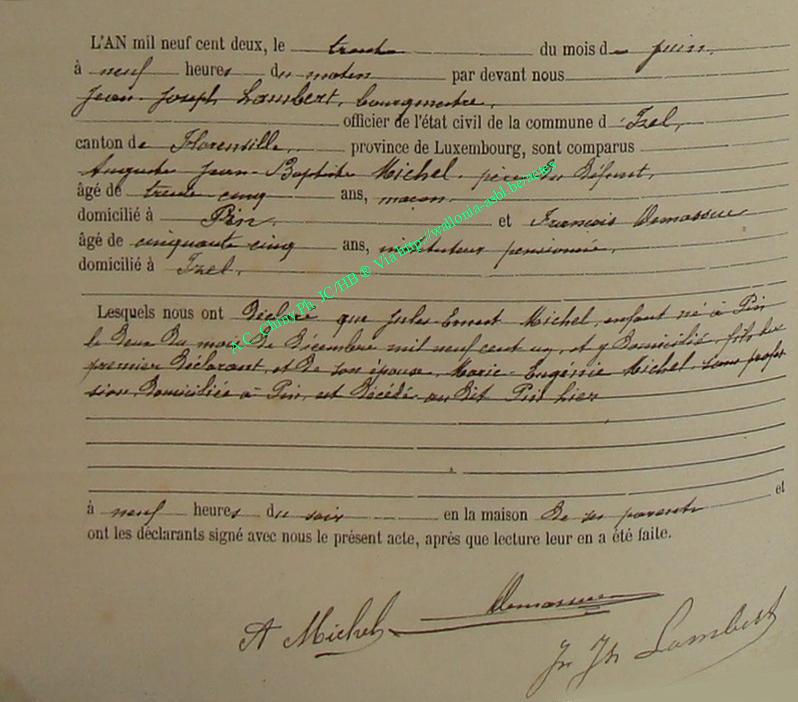 L'AN mil neuf cent deux, le trente du mois de juin.
à neuf heures du matin par devant nous
Jean Joseph Lambert, bourgmestre,
officier de l'état civil de la commune d'Izel,
canton de Florenville, province de Luxembourg, sont comparus
Auguste Jean-Baptiste Michel, père du défunt,
âgé de trente cinq ans, maçon,
domicilié à Pin, et François
âgé de cinquante cinq ans, instituteur pensionné,
domicilié à Izel,
Lesquels nous ont déclaré que Jules Ernest Michel, enfant né à Pin
le deux du mois de Décembre mil neuf cent un, et y domicilié, fils du
premier déclarant, et de son épouse, Marie-Eugénie Michel, sans profes
sion, domiciliée à Pin, est décédé au dit Pin hier
et
à neuf heures du soir en la maison de ses parents
ont les déclarants signé avec nous le présent acte, après que lecture leur en a été faite.
A Michel
Jn Jh Lambert
A.C. Chiny Ph. JC/HB ® Via http://wallonia-asbl.be/actes